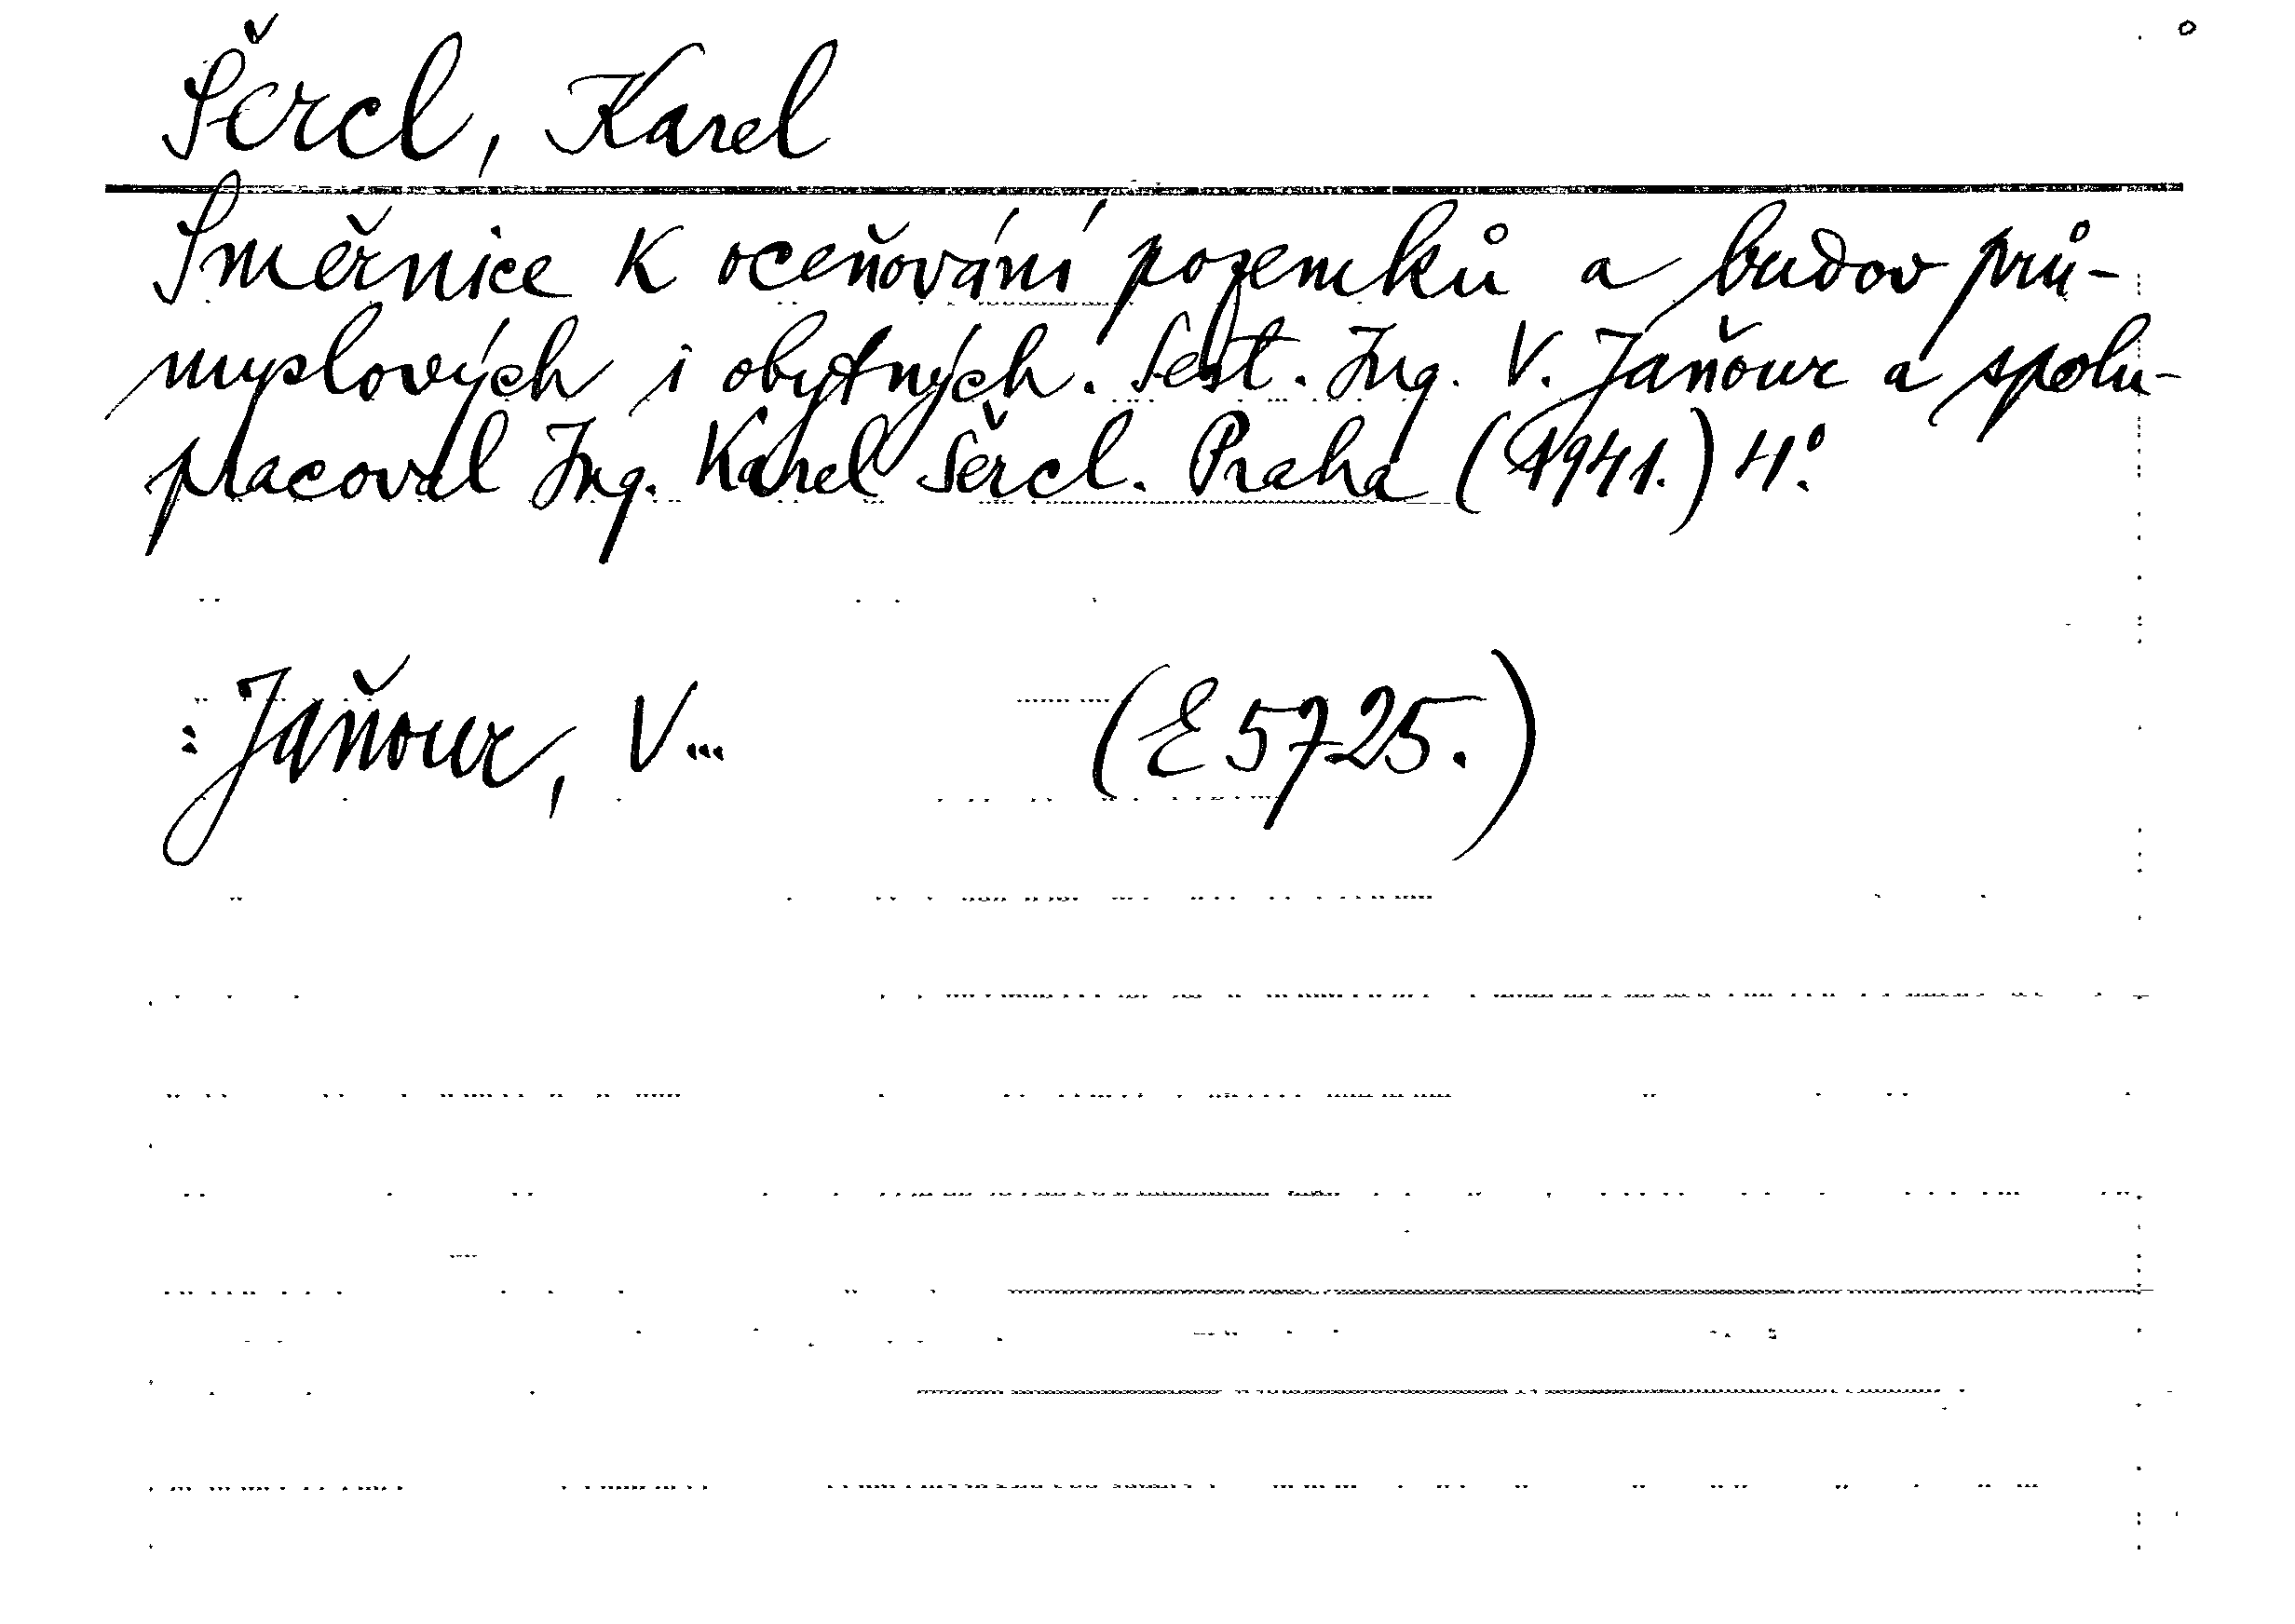 Šercl, Karel
Směrnice k oceňování pozemků a budov prů-
myslových i obytných. Sest. Ing. V. Jaňour a spolu-
pracoval Ing. Karel Šercl. Praha (1941.) 4°.
: Jaňour, V... (E 5725.)